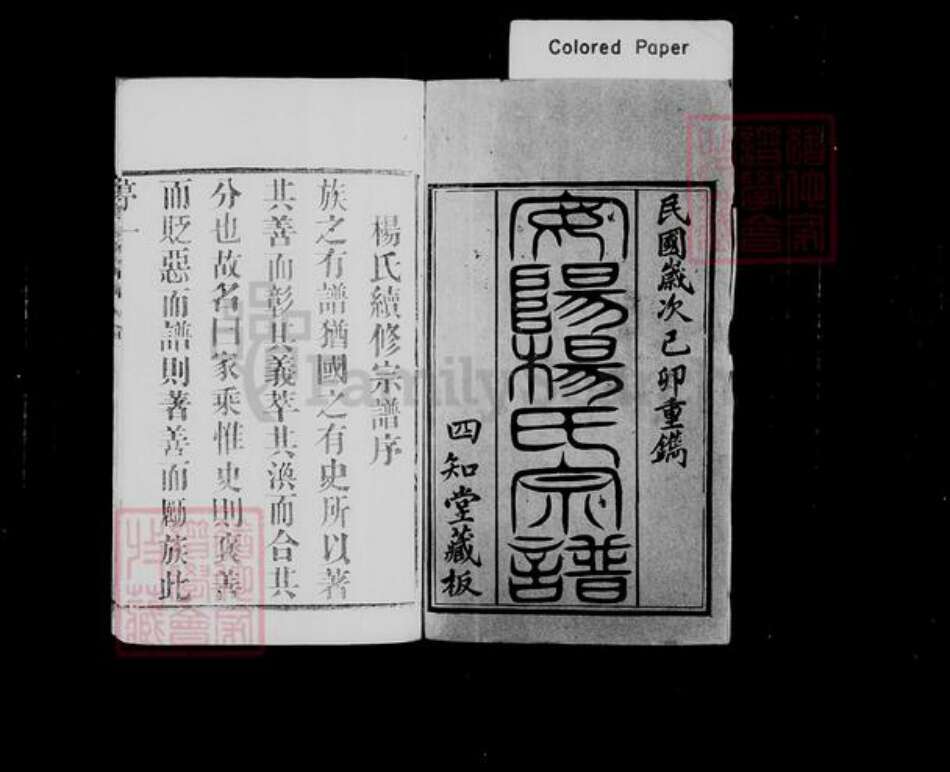 Colored Paper
民國歲次己卯重鐫
安陽楊氏宗譜
四知堂藏板
楊氏續修宗譜序
族之有譜猶國之有史所以著
其善而彰其義萃其渙而合其
分也故名曰家乘惟史則褒善
而貶惡而譜則著善而勵族此